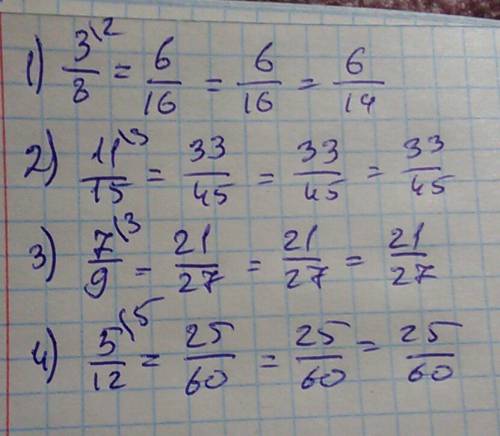 1) 3\2/8 = 6/16 = 6/16 = 6/14
2) 11\3/15 = 33/45 = 33/45 = 33/45
3) 7\3/9 = 21/27 = 21/27 = 21/27
4) 5\5/12 = 25/60 = 25/60 = 25/60